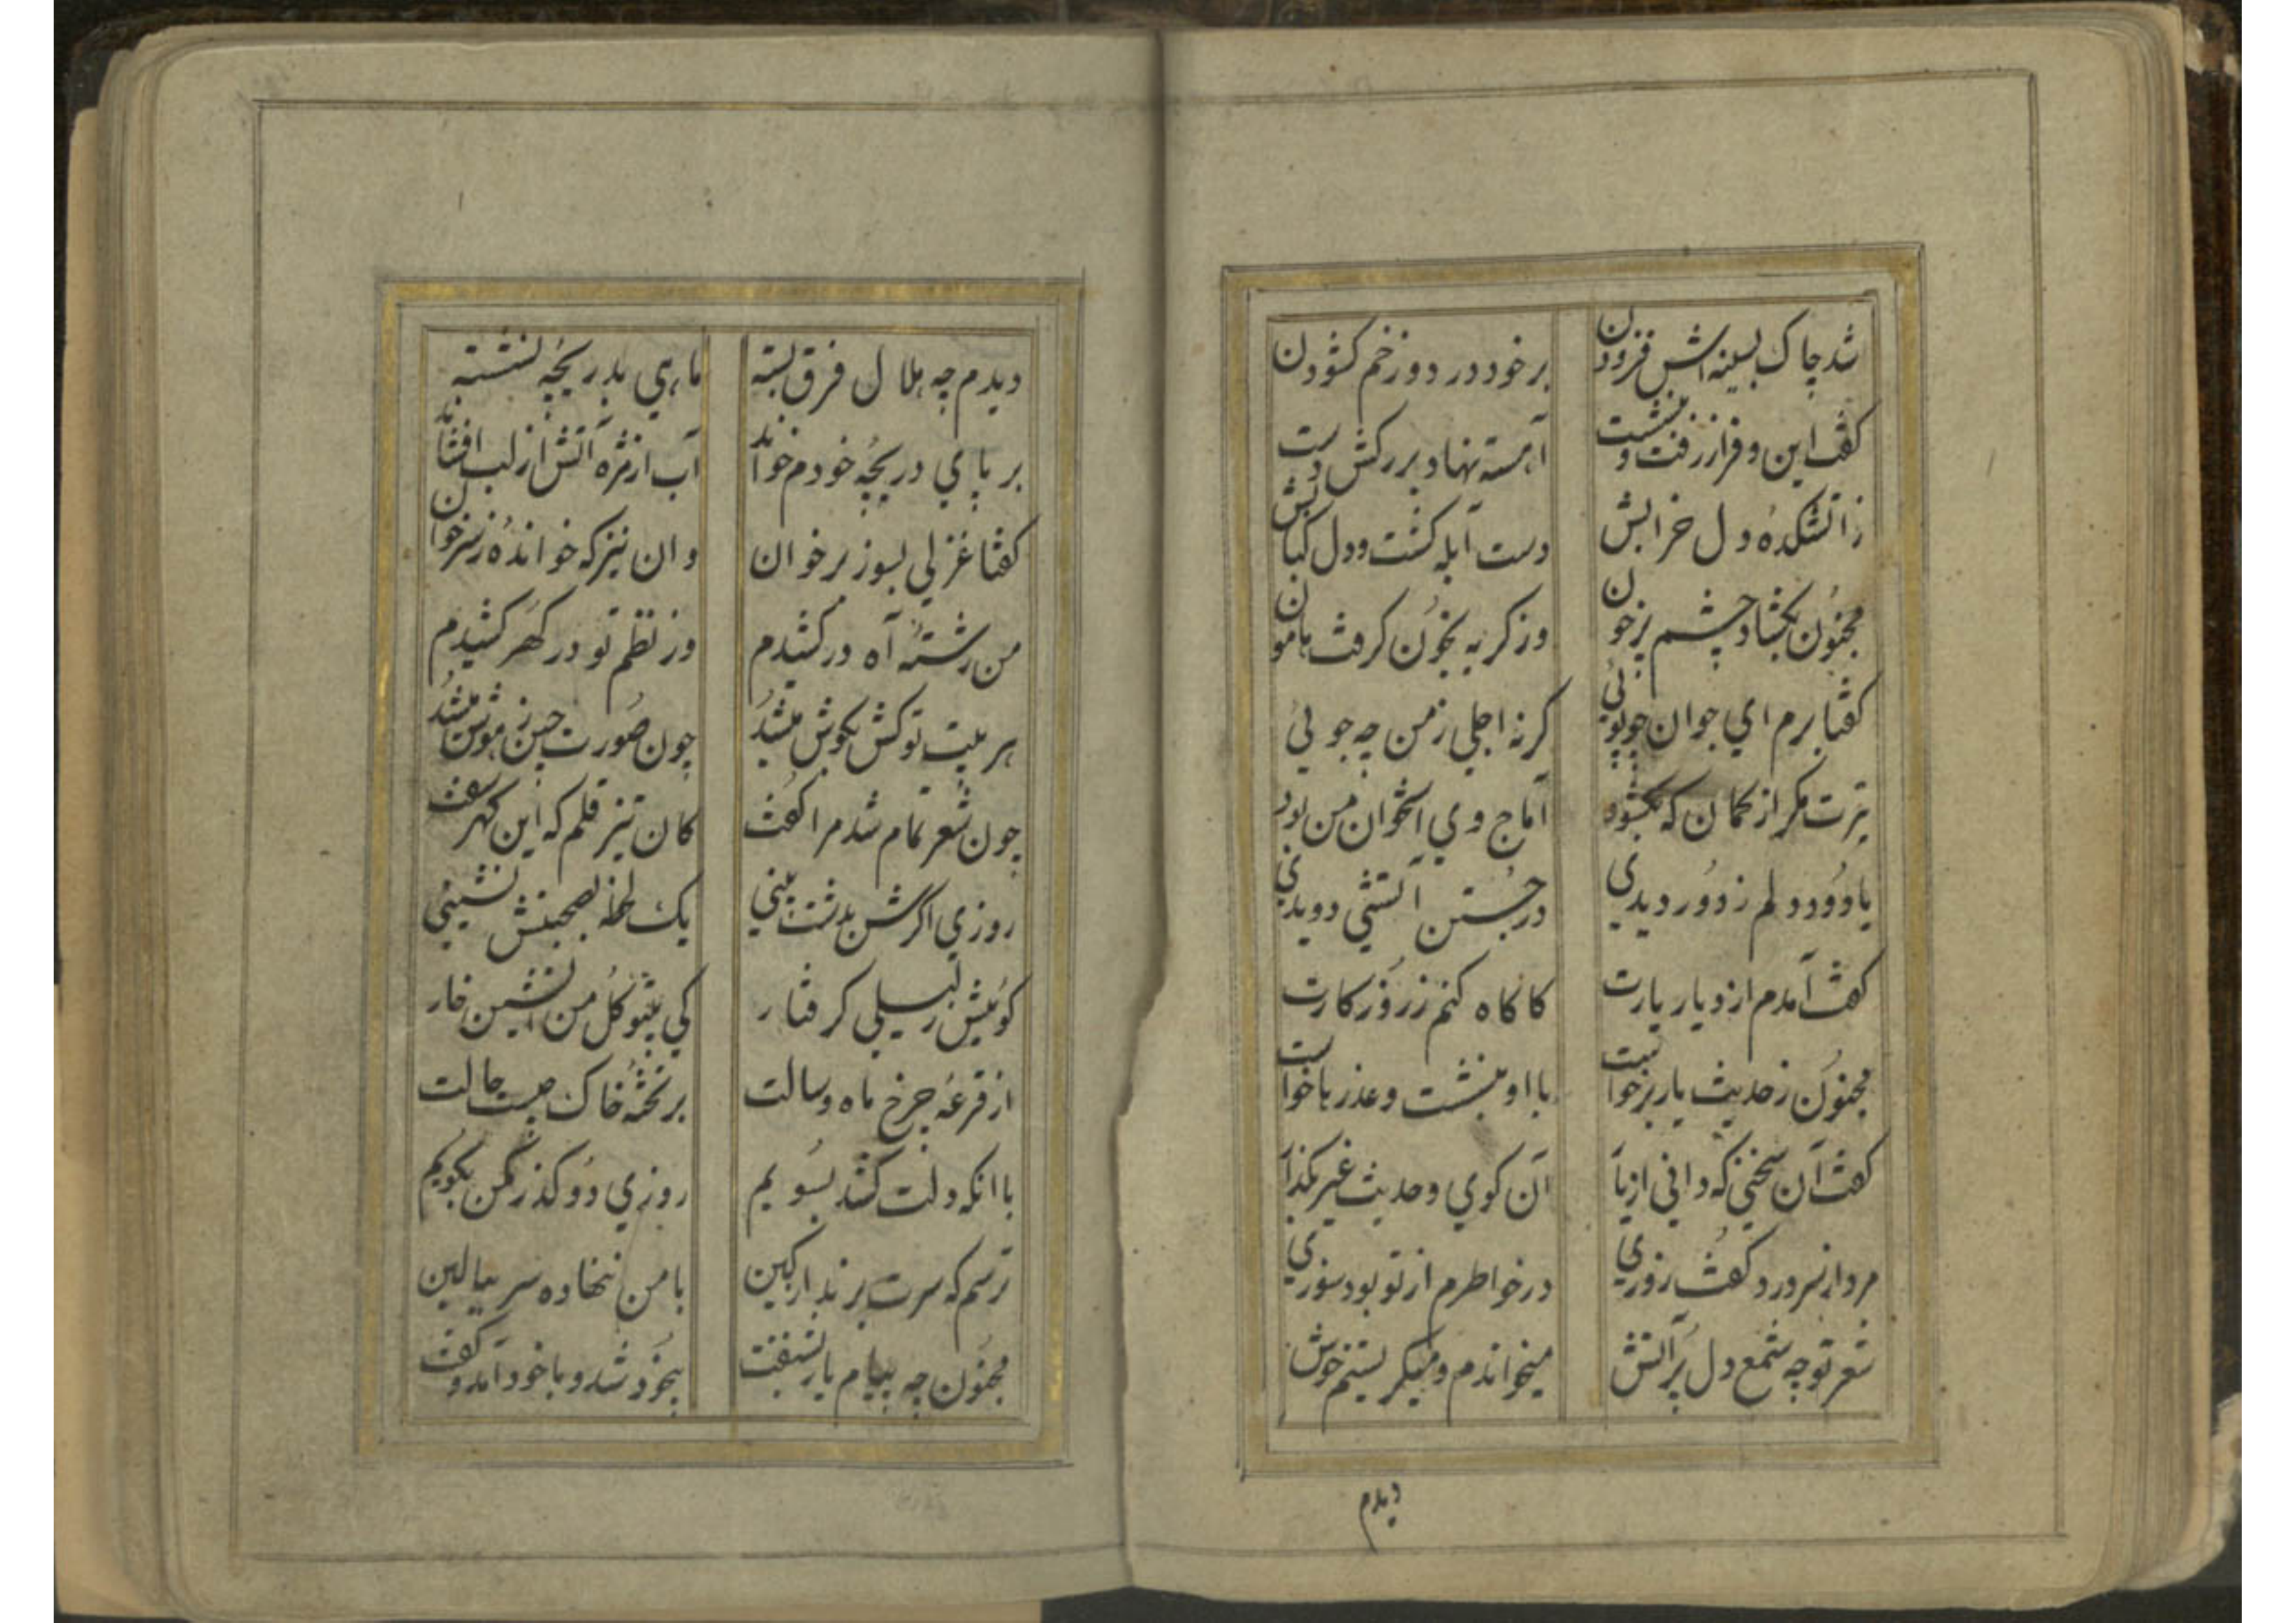 شد چاک بسینه اش فزودن برخود در دوزخم کشودن
کفت این و فراز رفت و بنشست آهسته نهاد بر رکش دست
زآتشکدهٔ دل خرابش دست آبله کشت و دل کبابش
مجنون بکشاد چشم پرخون وز کریه بخون کرفت هامون
کفتا برم ای جوان چو پوئی کر نه اجلی زمن چه جوئی
تیرت مکر از کمان که بکشود آماج وی استخوان من بود
یا دود دلم ز دور دیدی در جستن آتشی دویدی
کفت آمدم از دیار یارت کاکاه کنم ز روز کارت
مجنون ز حدیث یار برخواست با او بنشست و عذرها خواست
کفت آن سخنی که دانی از یا آن کوی و حدیث غیر بکذا
مرد از سر درد کفت روزی در خواطرم از تو بود سوزی
شعر تو چه شمع دل پر آتش میخواندم و میکریستم خوش
دیدم
دیدم چه هلال فرق بسته ماهی بدریچه نشسته
بر پای دریچهٔ خودم خواند آب از مژه آتش از لب افشاند
کفتا غزلی بسوز برخوان وان نیز که خواندهٔ ز سر خوان
من رشتهٔ آه در کشیدم وز نظم تو در کهر کشیدم
هر بیت تو کش بکوش میشد چون صورت چین ز هوش میشد
چون شعر تمام شد مرا کفت کان تیز قلم که این کهر سفت
روزی اکرش بدشت بینی یک لحظه بصحبتش نشینی
کویش ز لیلی کرفتار کی بیتو کل من آتشین خار
از قرعهٔ چرخ ماه و سالت بر تختهٔ خاک چیست حالت
با انکه دلت کشد بسویم روزی دو کذر مکن بکویم
ترسم که سرت برند از کین با من ننهاده سر ببالین
مجنون چه پیام یار بشنفت بیخود شد و با خود آمد و کفت